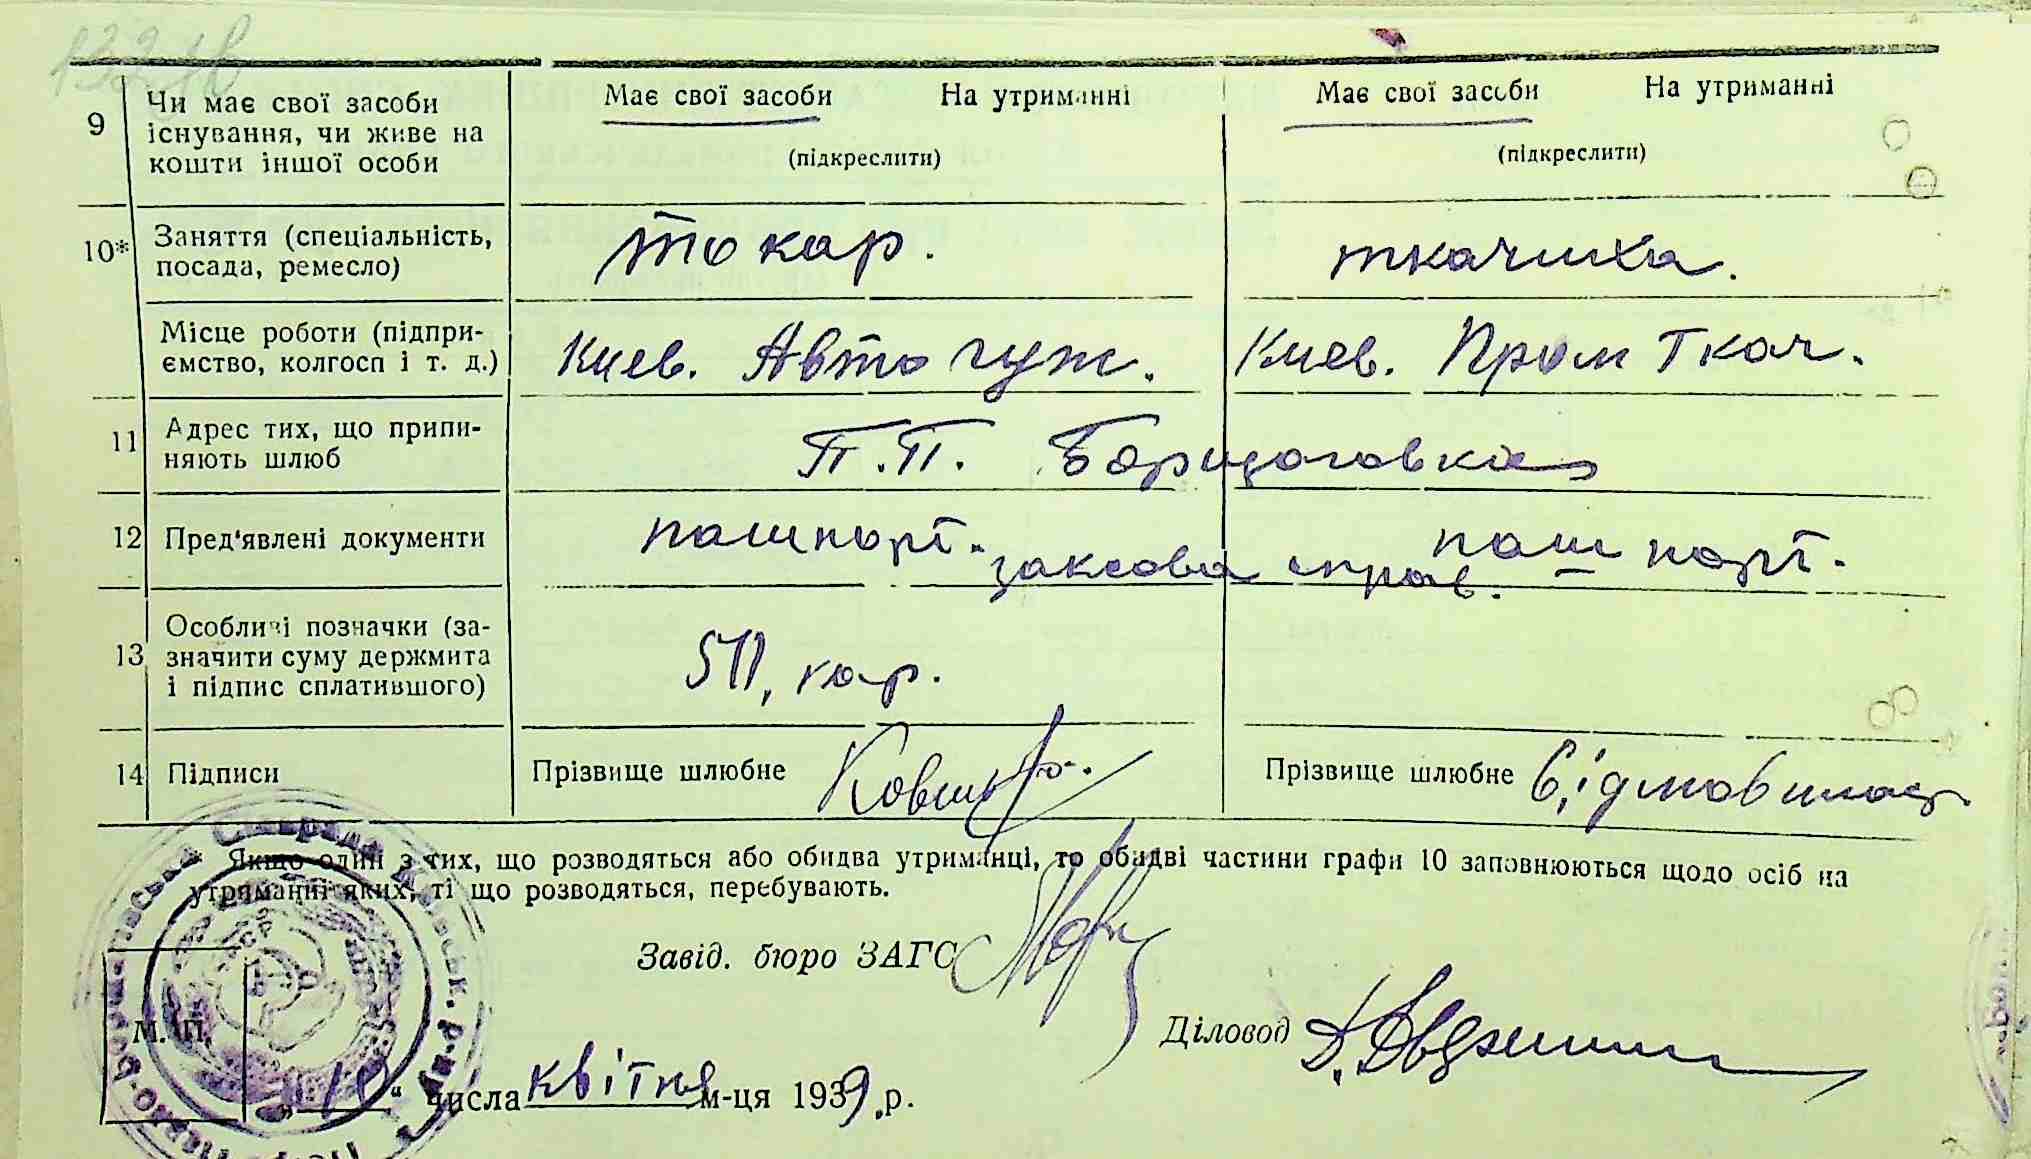 9 Чи має свої засоби існування, чи живе на кошти іншої особи
Має свої засоби На утриманні
(підкреслити)
Має свої засоби На утриманні
(підкреслити)
10* Заняття (спеціальність, посада, ремесло)
токар.
ткачиха.
Місце роботи (підприємство, колгосп і т. д.)
Киев. Авто гуж.
Киев. Пром Ткач.
11 Адрес тих, що припиняють шлюб
П.П. Борщаговка
12 Пред'явлені документи
пашпорт.
загсова справ.
пашпорт.
13 Особливі позначки (зазначити суму держмита і підпис сплатившого)
50, кар.
14 Підписи
Прізвище шлюбне
Прізвище шлюбне Відмовилась
* Якщо один з тих, що розводяться або обидва утриманці, то обидві частини графи 10 заповнюються щодо осіб на
утриманні яких, ті що розводяться, перебувають.
Завід. бюро ЗАГС
Діловод
М. П.
„10“ числа квітня м-ця 1939 р.